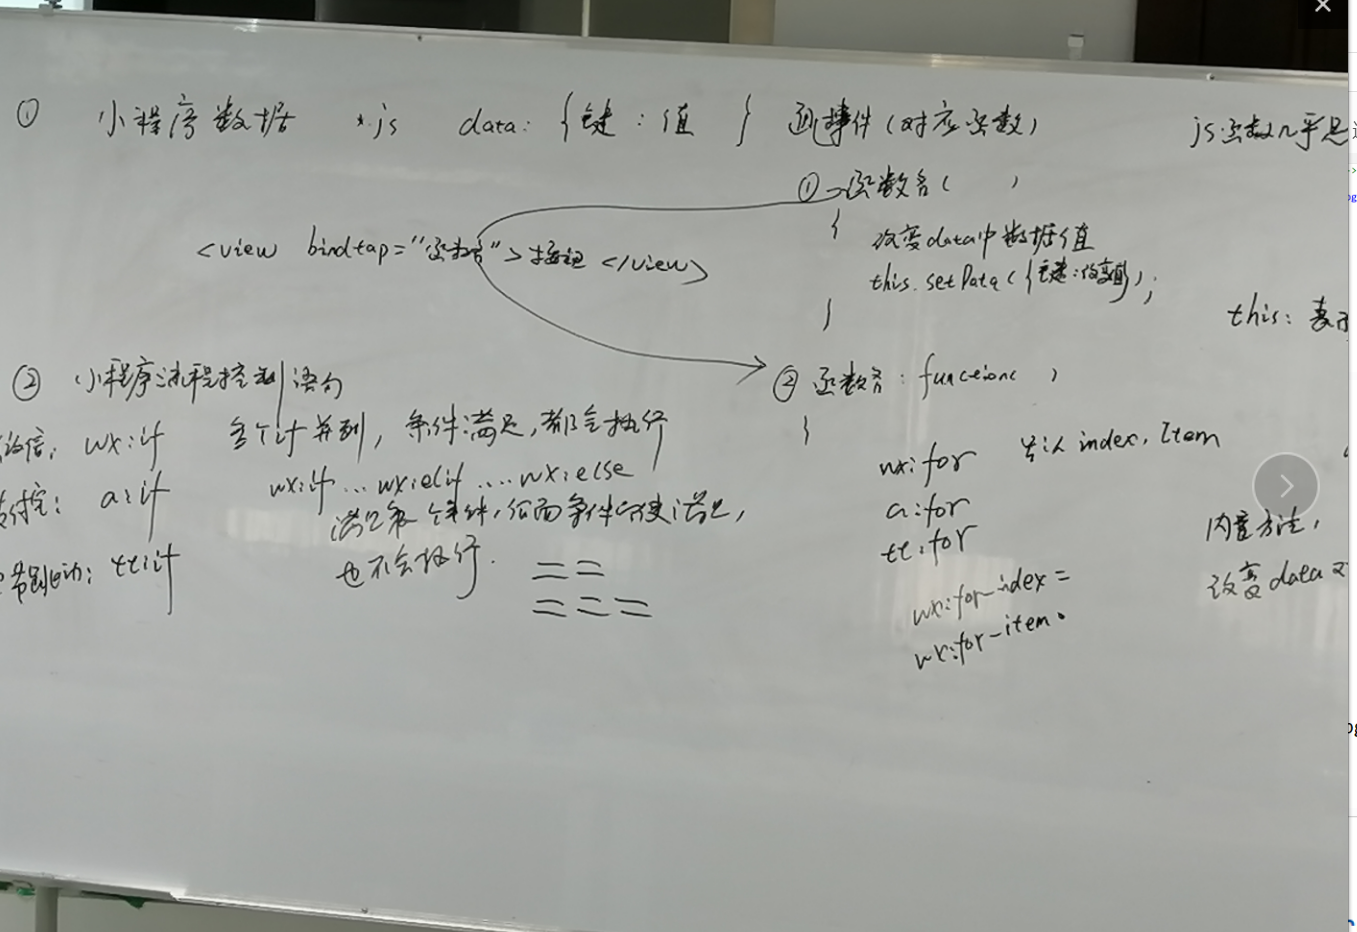 ① 小程序数据 *.js data: {键:值 } 通事件(对应函数)
js函数几乎是
① 函数名( )
{
改变data中数据值
this.setData({键:改变值});
}
<view bindtap="函数名">按钮</view>
this: 表示
② 小程序流程控制语句
② 函数名: function( )
}
微信: wx:if 多个if并列, 条件满足, 都会执行
支付宝: a:if wx:if...wx:elif ....wx:else
满足某个条件, 后面条件即使满足,
字节跳动: tt:if 也不会执行.
==
===
wx:for 默认 index, item
a:for
tt:for
wx:for-index=
wx:for-item
内置方法,
改变data